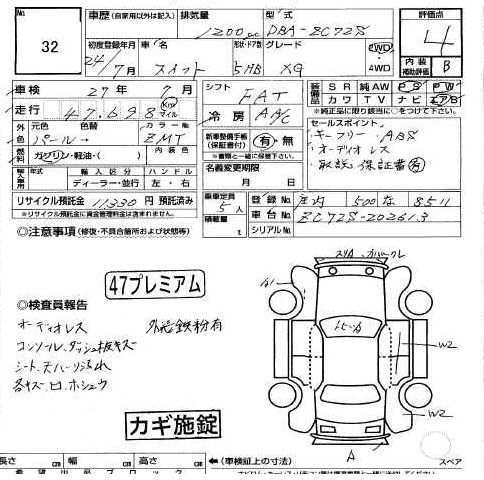 32
車歴 (自家用以外は記入) 排気量 1200cc 型式 DBA-ZC72S
初度登録年月 24/7月 車名 スイフト 形状・ドア数 5HB グレード XG 2WD・4WD
評価点 4
内装補助評価 B
車検 27年 7月
走行 47,698 Km マイル
シフト FAT
冷房 AAC
装備品 SR 純AW PS PW
カワ TV ナビ エアB
※純正品に限り該当に○をつけて下さい
外色 元色 色替 カラーNo
パール ZMT
燃料 ガソリン・軽油・( ) 内装色
新車整備手帳(保証書付) 有・無
※書類と一緒に保管下さい。
セールスポイント
・キーフリー・ABS
・オーディオレス
・取説 保証書有
輸入車用 年式 輸入区分 ハンドル
ディーラー・並行 左・右
名義変更期限
月 日
リサイクル預託金 11330円 預託済み
※リサイクル預託金に資金管理料金は含まれません。
乗車定員 5人
積載量 t
登録No. 庄内 500 な 8511
車台No. ZC72S-202613
シリアルNo.
◎注意事項 (修復・不具合箇所および状態等)
47プレミアム
◎検査員報告
オーディオレス 外装鉄粉有
コンソール、ダッシュ板キズ
シート、天ハリ汚れ
各キズ・凹・ホシュウ
カギ施錠
A1
W2
W2
A
スペア
長さ cm 幅 cm 高さ cm ←(車検証上の寸法)